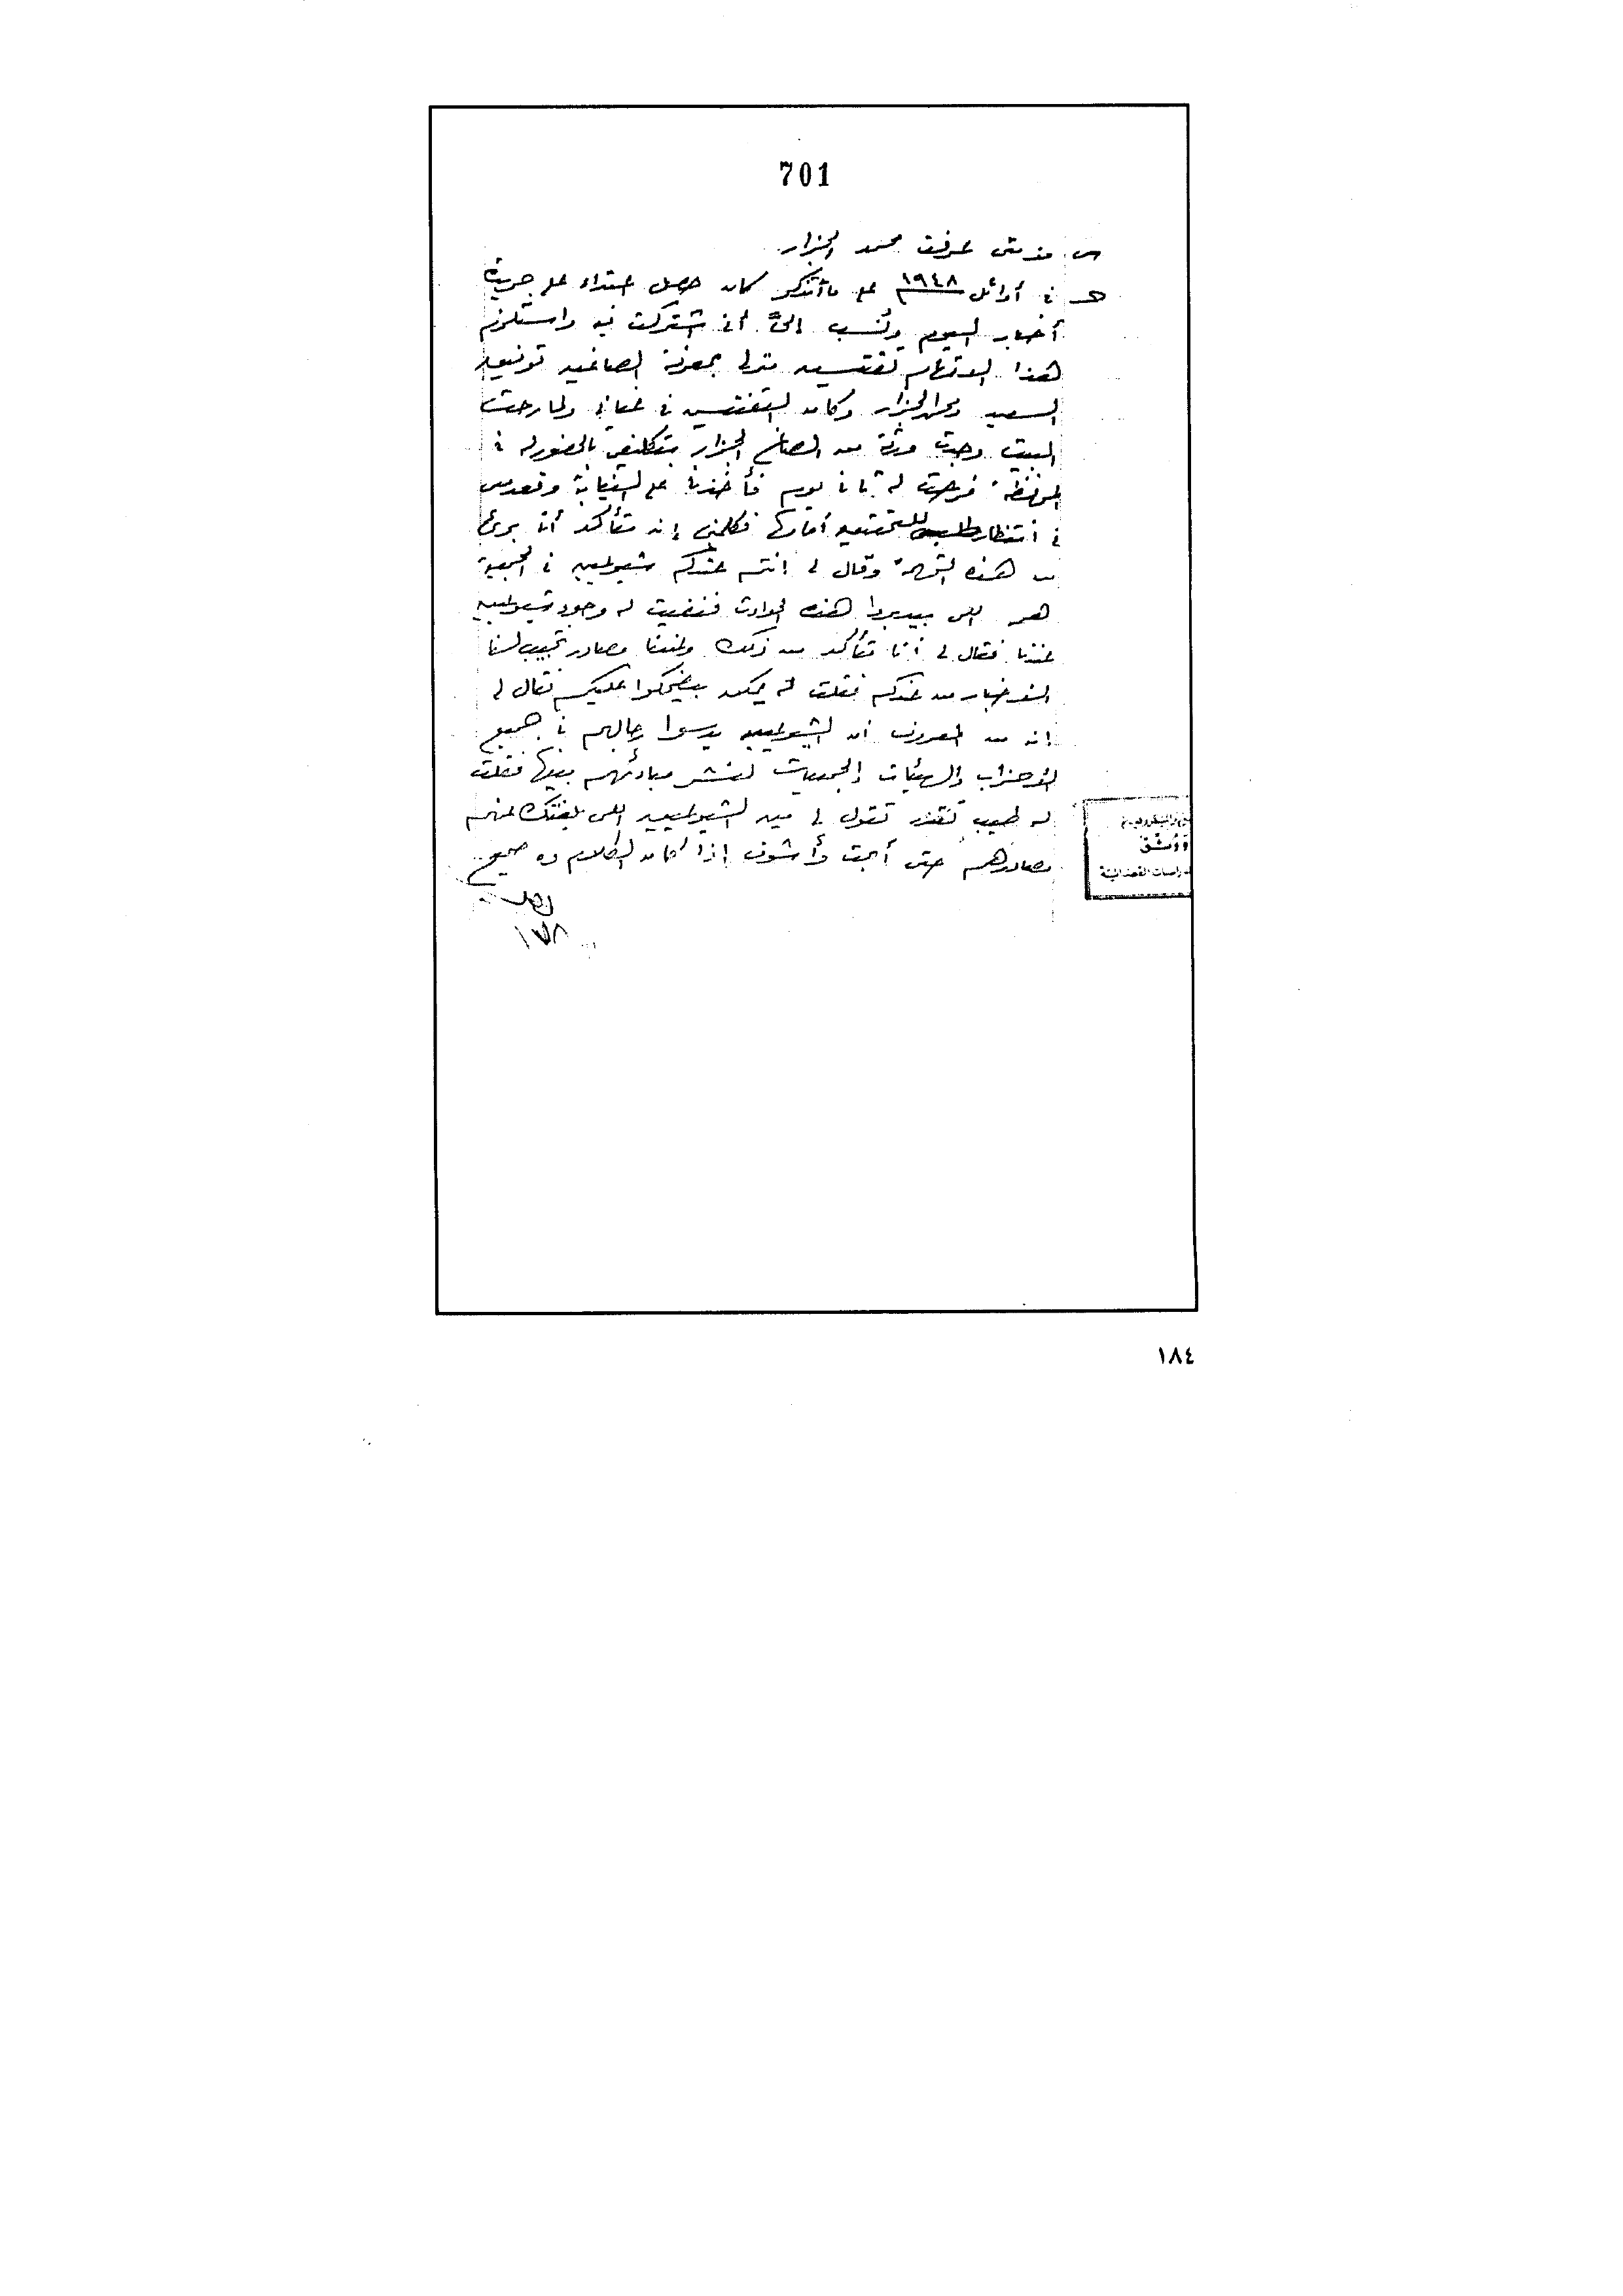 701
س. منذ متى عرفت محمد الجزار.
جـ في أوائل ١٩٤٨ على ما أتذكر كان حصل اعتداء على جريدة
أخبار اليوم ونُسب إليَّ أني اشتركت فيه واستلزم
هذا الاتهام تفتيش منزلي بمعرفة الصاغين توفيق
السعيد ومحمد الجزار وكان التفتيش في غيابي ولما رحت
البيت وجدت ورقة من الصاغ الجزار بتكليفي بالحضور له في
المحافظة فرحت له تاني يوم فأخذنا على النيابة وقعدنا
في انتظار طلبي للتحقيق أمامها فكلمني إنه متأكد أنا بريء
من هذه التهمة وقال لي انتم عندكم شيوعيين في الجمعية
هم اللي بيدبروا هذه الحوادث فنفيت له وجود شيوعيين
عندنا فقال لي أنا متأكد من ذلك وعندنا مصادر تجيب لنا
الأخبار من عندكم فقلت له يمكن بيضحكوا عليكم فقال لي
إنه من المعروف أن الشيوعيين يدسوا رجالهم في جميع
الأحزاب والهيئات والجمعيات لنشر مبادئهم بينها فقلت
له طيب تقدر تقول لي مين الشيوعيين اللي بلغتك عنهم
مصادركم حتى أبحث وأشوف إذا كان الكلام ده صحيح
١٧٨
١٨٤